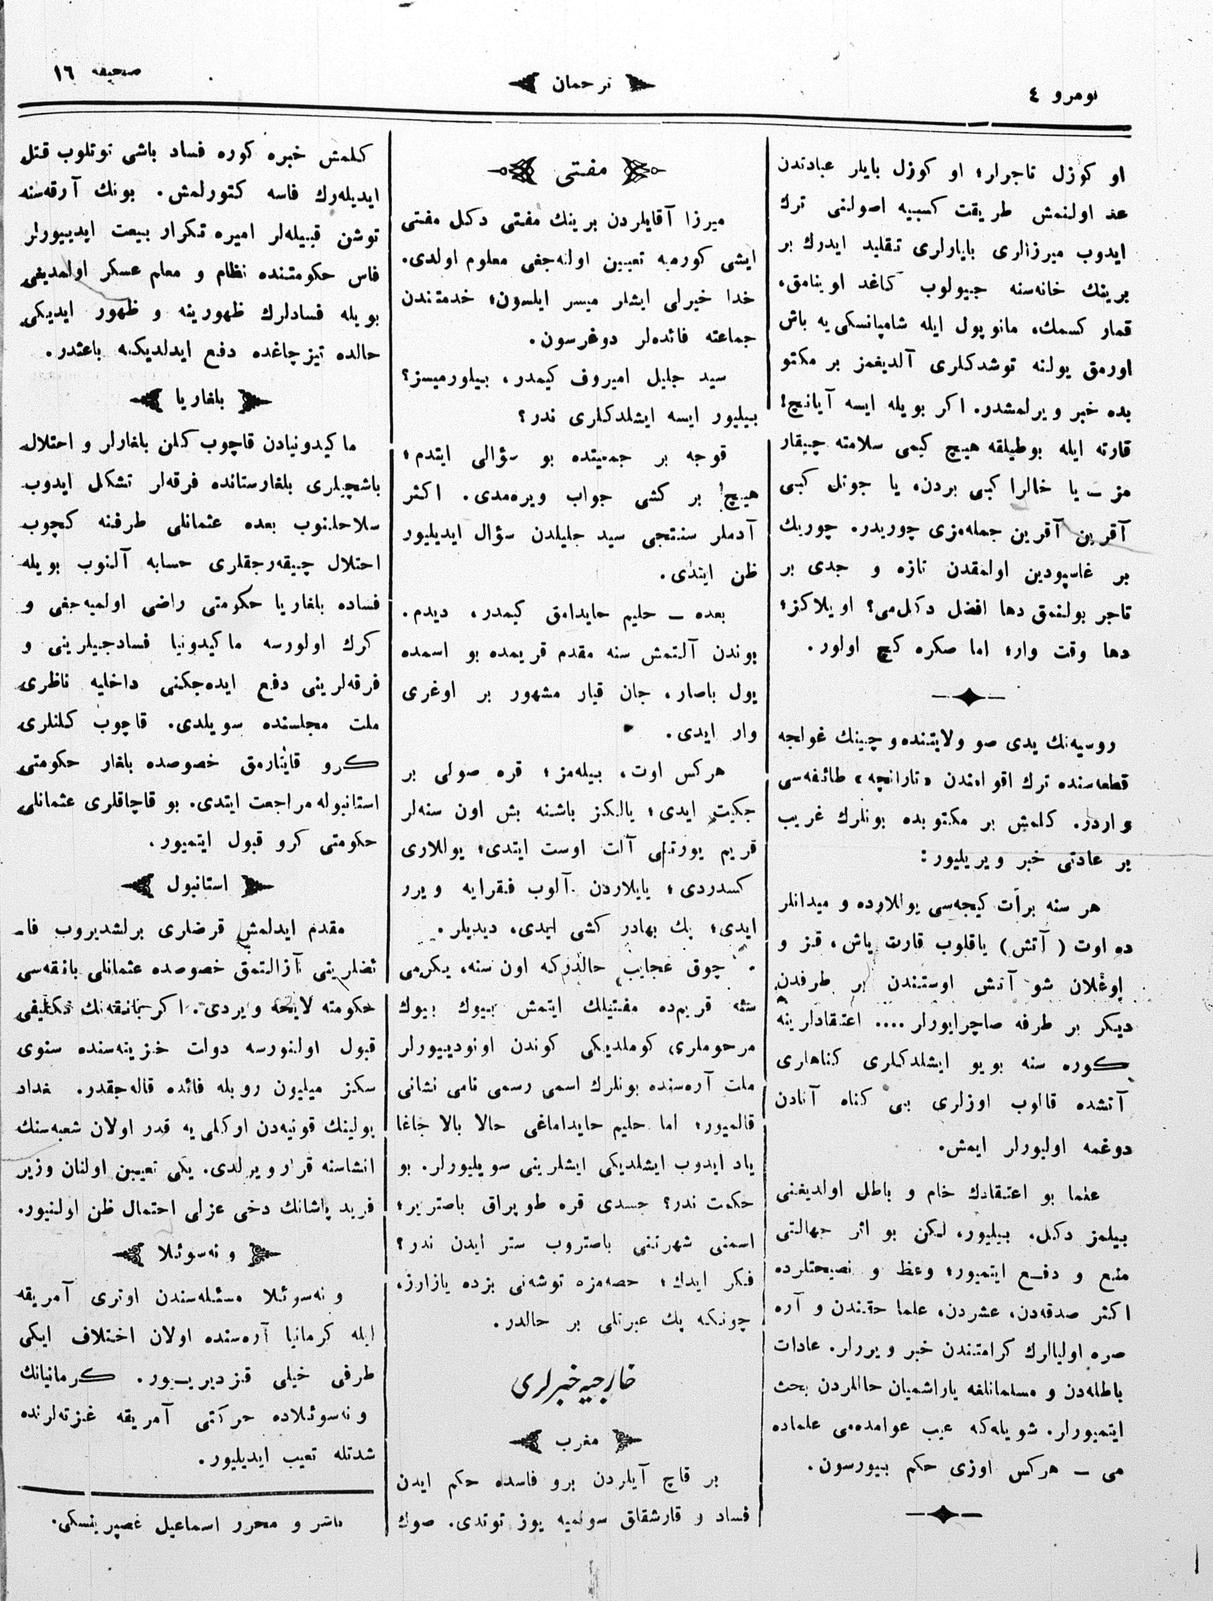 نومرو ٤
ترجمان
صحیفه ١٦
او كوزل تاجرلر؛ او كوزل بايلر عبادتدن
عد اولنمش طريقت كسبيه اصولنى ترك
ايدوب ميرزالرى بايارلرى تقليد ايدرك بر
برينك خانه‌سنه جيولوب كاغد اوينامق،
قمار كسمك، مانوپول ايله شامپانسكى يه باش
اورمق يولنه توشدكلرى آلديغمز بر مكتو
بده خبر ويرلمشدر. اكر بويله ايسه آيانچ!
قارته ايله بوطيلقه هيچ كيمى سلامته چيقار
مز ـ يا خاللرا كبى بردن، يا جوتل كبى
آقرين آقرين جمله‌مزى چوريدر. چوريك
بر غاسپودين اولمقدن تازه و جدى بر
تاجر بولنمق دها افضل دكلمى؟ اويلاكز؛
دها وقت وار؛ اما صكره كچ اولور.
روسيه‌نك يدى صو ولايتنده و چينك غولجه
قطعه‌سنده ترك اقوامندن «تارانچه» طائفه‌سى
واردر. كلمش بر مكتوبده بونلرك غريب
بر عادتى خبر ويريليور:
هر سنه برأت كيجه‌سى يوللارده و ميدانلر
ده اوت (آتش) ياقلوب قارت ياش، قز و
اوغلان شو آتش اوستندن بر طرفدن
ديكر بر طرفه صاچرايورلر .... اعتقادلرينه
كوره سنه بويو ايشلدكلرى كناهلرى
آتشده قالوب اوزلرى بى كناه آنادن
دوغمه اوليورلر ايمش.
علما بو اعتقادك خام و باطل اولديغنى
بيلمز دكل، بيليور، لكن بو اثر جهالتى
منع و دفع ايتميور؛ وعظ و نصيحتلرده
اكثر صدقه‌دن، عشردن، علما حقندن و آره
صره اوليالرك كرامتندن خبر ويررلر. عادات
باطله‌دن و مسلمانلغه ياراشميان حاللردن بحث
ايتميورلر. شويله‌كه عيب عوامده‌مى علماده
مى ـ هركس اوزى حكم بيورسون.
مفتى
ميرزا آقايلردن برينك مفتى دكل مفتى
ايشى كورمه تعيين اوله‌جغى معلوم اولدى.
خدا خيرلى ايشلر ميسر ايلسون؛ خدمتندن
جماعته فائده‌لر دوغرسون.
سيد جليل اميروف كيمدر، بيلورميسز؟
بيليور ايسه ايشلدكلرى ندر؟
قوجه بر جمعيتده بو سؤالى ايتدم؛
هيچ! بر كشى جواب ويره‌مدى. اكثر
آدملر سنتجى سيد جليلدن سؤال ايديليور
ظن ايتدى.
بعده ـ حليم حايدامق كيمدر، ديدم.
بوندن آلتمش سنه مقدم قريمده بو اسمده
يول باصار، جان قيار مشهور بر اوغرى
وار ايدى.
هركس اوت، بيله‌مز؛ قره صولى بر
جكيت ايدى؛ يالكز باشنه بش اون سنه‌لر
قريم يورتنى آلت اوست ايتدى؛ يوللارى
كسدردى؛ بايلاردن آلوب فقرايه ويرر
ايدى؛ پك بهادر كشى ايدى، ديديلر.
چوق عجايب حالدركه اون سنه، يكرمى
سنه قريم‌ده مفتيلك ايتمش بيوك بيوك
مرحوملرى كوملديكى كوندن اونوديبورلر
ملت آره‌سنده بونلرك اسمى رسمى نامى نشانى
قالميور؛ اما حليم حايداماغى حالا بالا جاغا
ياد ايدوب ايشلديكى ايشلرينى سويليورلر. بو
حكمت ندر؟ جسدى قره طوپراق باصترير؛
اسمنى شهرتنى باصتروب ستر ايدن ندر؟
فكر ايدك؛ حصه‌مزه توشه‌نى بزده يازارز،
چونكه پك عبرتلى بر حالدر.
خارجيه خبرلرى
مغرب
بر قاچ آيلردن برو فاسده حكم ايدن
فساد و قارشقاق سونميه يوز توتدى. صوك
كلمش خبره كوره فساد باشى توتلوب قتل
ايديله‌رك فاسه كتورلمش. بونك آرقه‌سنه
توشن قبيله‌لر اميره تكرار بيعت ايديبورلر
فاس حكومتنده نظام و معلم عسكر اولمديغى
بويله فسادلرك ظهورينه و ظهور ايديكى
حالده تيز چاغده دفع ايدلديكنه باعثدر.
بلغاريا
ماكيدونيادن قاچوب كلن بلغارلر و احتلال
باشچيلرى بلغارستانده فرقه‌لر تشكل ايدوب
سلاحلنوب بعده عثمانلى طرفنه كچوب
احتلال چيقه‌رجقلرى حسابه آلنوب بويله
فساده بلغاريا حكومتى راضى اولميه‌جغى و
كرك اولورسه ماكيدونيا فسادجيلرينى و
فرقه‌لرينى دفع ايده‌جكنى داخليه ناظرى
ملت مجلسنده سويلدى. قاچوب كلنلرى
كرو قايتارمق خصوصده بلغار حكومتى
استانبوله مراجعت ايتدى. بو قاچاقلرى عثمانلى
حكومتى كرو قبول ايتميور.
استانبول
مقدم ايدلمش قرضلرى برلشديروب فا-
ئضلرينى آزالتمق خصوصده عثمانلى بانقه‌سى
حكومته لايحه ويردى. اكر بانقه‌نك تكليفى
قبول اولنورسه دولت خزينه‌سنده سنوى
سكز ميليون روبله فائده قاله‌جقدر. بغداد
يولينك قونيه‌دن اوكلى يه قدر اولان شعبه‌سنك
انشاسنه قرار ويرلدى. يكى تعيين اولنان وزير
فريد پاشانك دخى عزلى احتمال ظن اولنيور.
ونه‌سوئلا
ونه‌سوئلا مسئله‌سندن اوترى آمريقه
ايله كرمانيا آره‌سنده اولان اختلاف ايكى
طرفى خيلى قزديريبور. كرمانيانك
ونه‌سوئلاده حركتى آمريقه غزته‌لرنده
شدتله تعيب ايديليور.
ناشر و محرر اسماعيل غصپرينسكى.